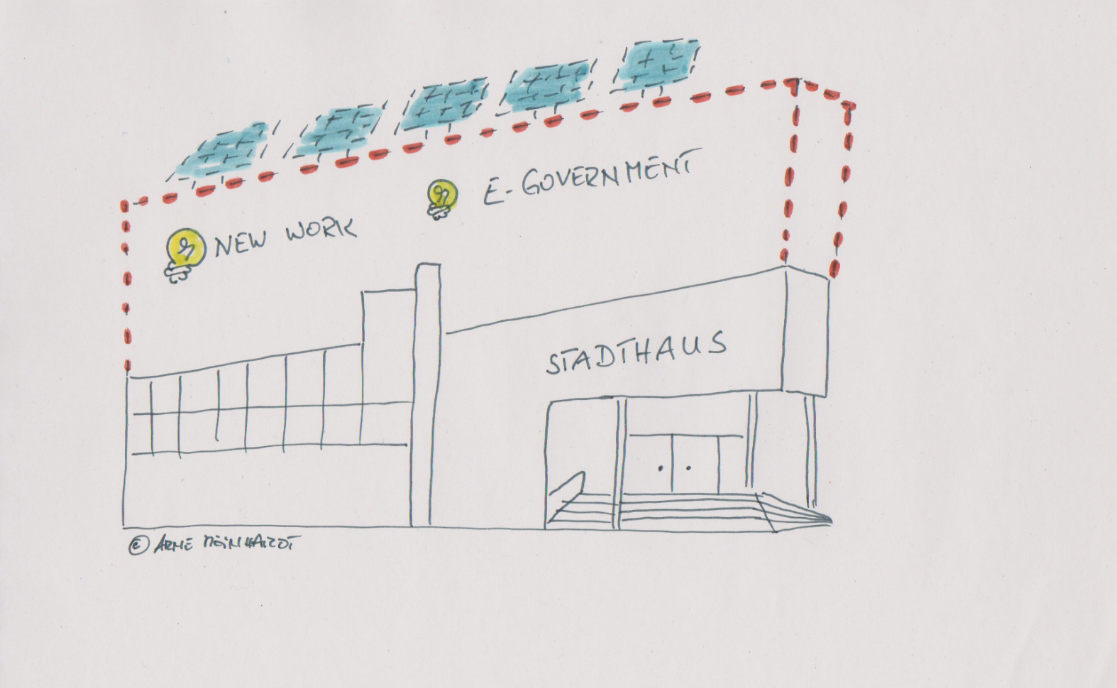 E-GOVERNMENT
NEW WORK
STADTHAUS
© ARNE MEINHARDT